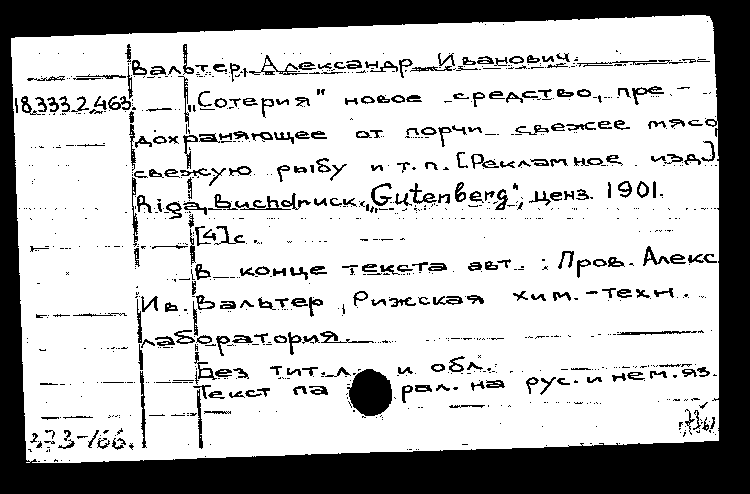 Вальтер, Александр Иванович.
18.333.2.463. „Сотерия" новое средство, пре-
дохраняющее от порчи свежее мясо,
свежую рыбу и т.п. [Рекламное изд.].
Riga, Buchdruck. „Gutenberg", ценз. 1901.
[4] с.
В конце текста авт.: Пров. Алекс.
Ив. Вальтер, Рижская хим.-техн.
лаборатория.
Без тит. л. и обл.
Текст па рал. на рус. и нем. яз.
373-166.